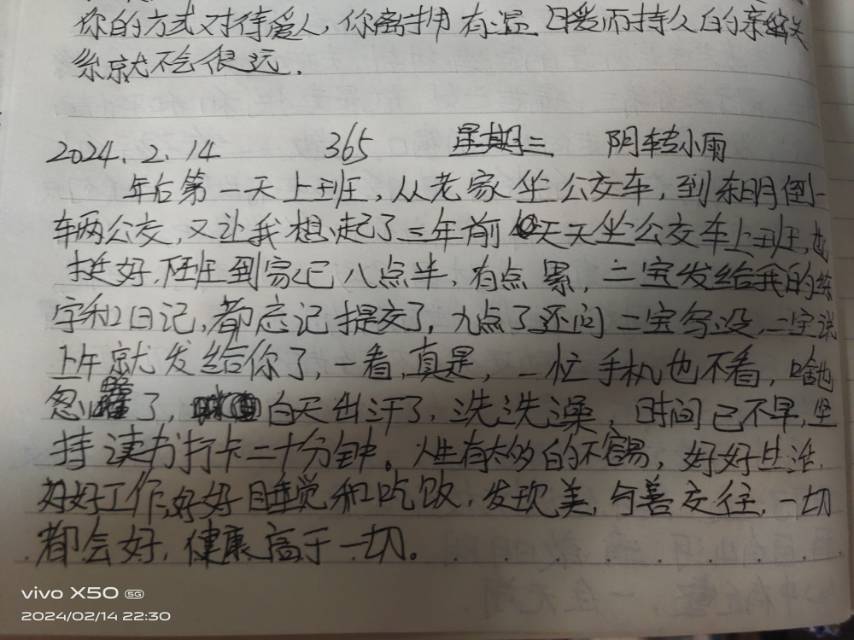 你的方式对待爱人，你离拥有温暖而持久的亲密关
系就不会很远．
2024．2．14 365 星期三 阴转小雨
年后第一天上班，从老家坐公交车，到东明倒一
车两公交，又让我想起了三年前天天坐公交车上班，也
挺好，下班到家已八点半，有点累，二宝发给我的练
字和日记，都忘记提交了，九点了还问二宝写没，二宝说
下午就发给你了，一看，真是，一忙手机也不看，啥也
忽略了，白天出汗了，洗洗澡，时间已不早，坚
持读书打卡二十分钟。人生有太多的不容易，好好生活，
好好工作，好好睡觉和吃饭，发现美，与善交往，一切
都会好，健康高于一切。
vivo X50 5G
2024/02/14 22:30